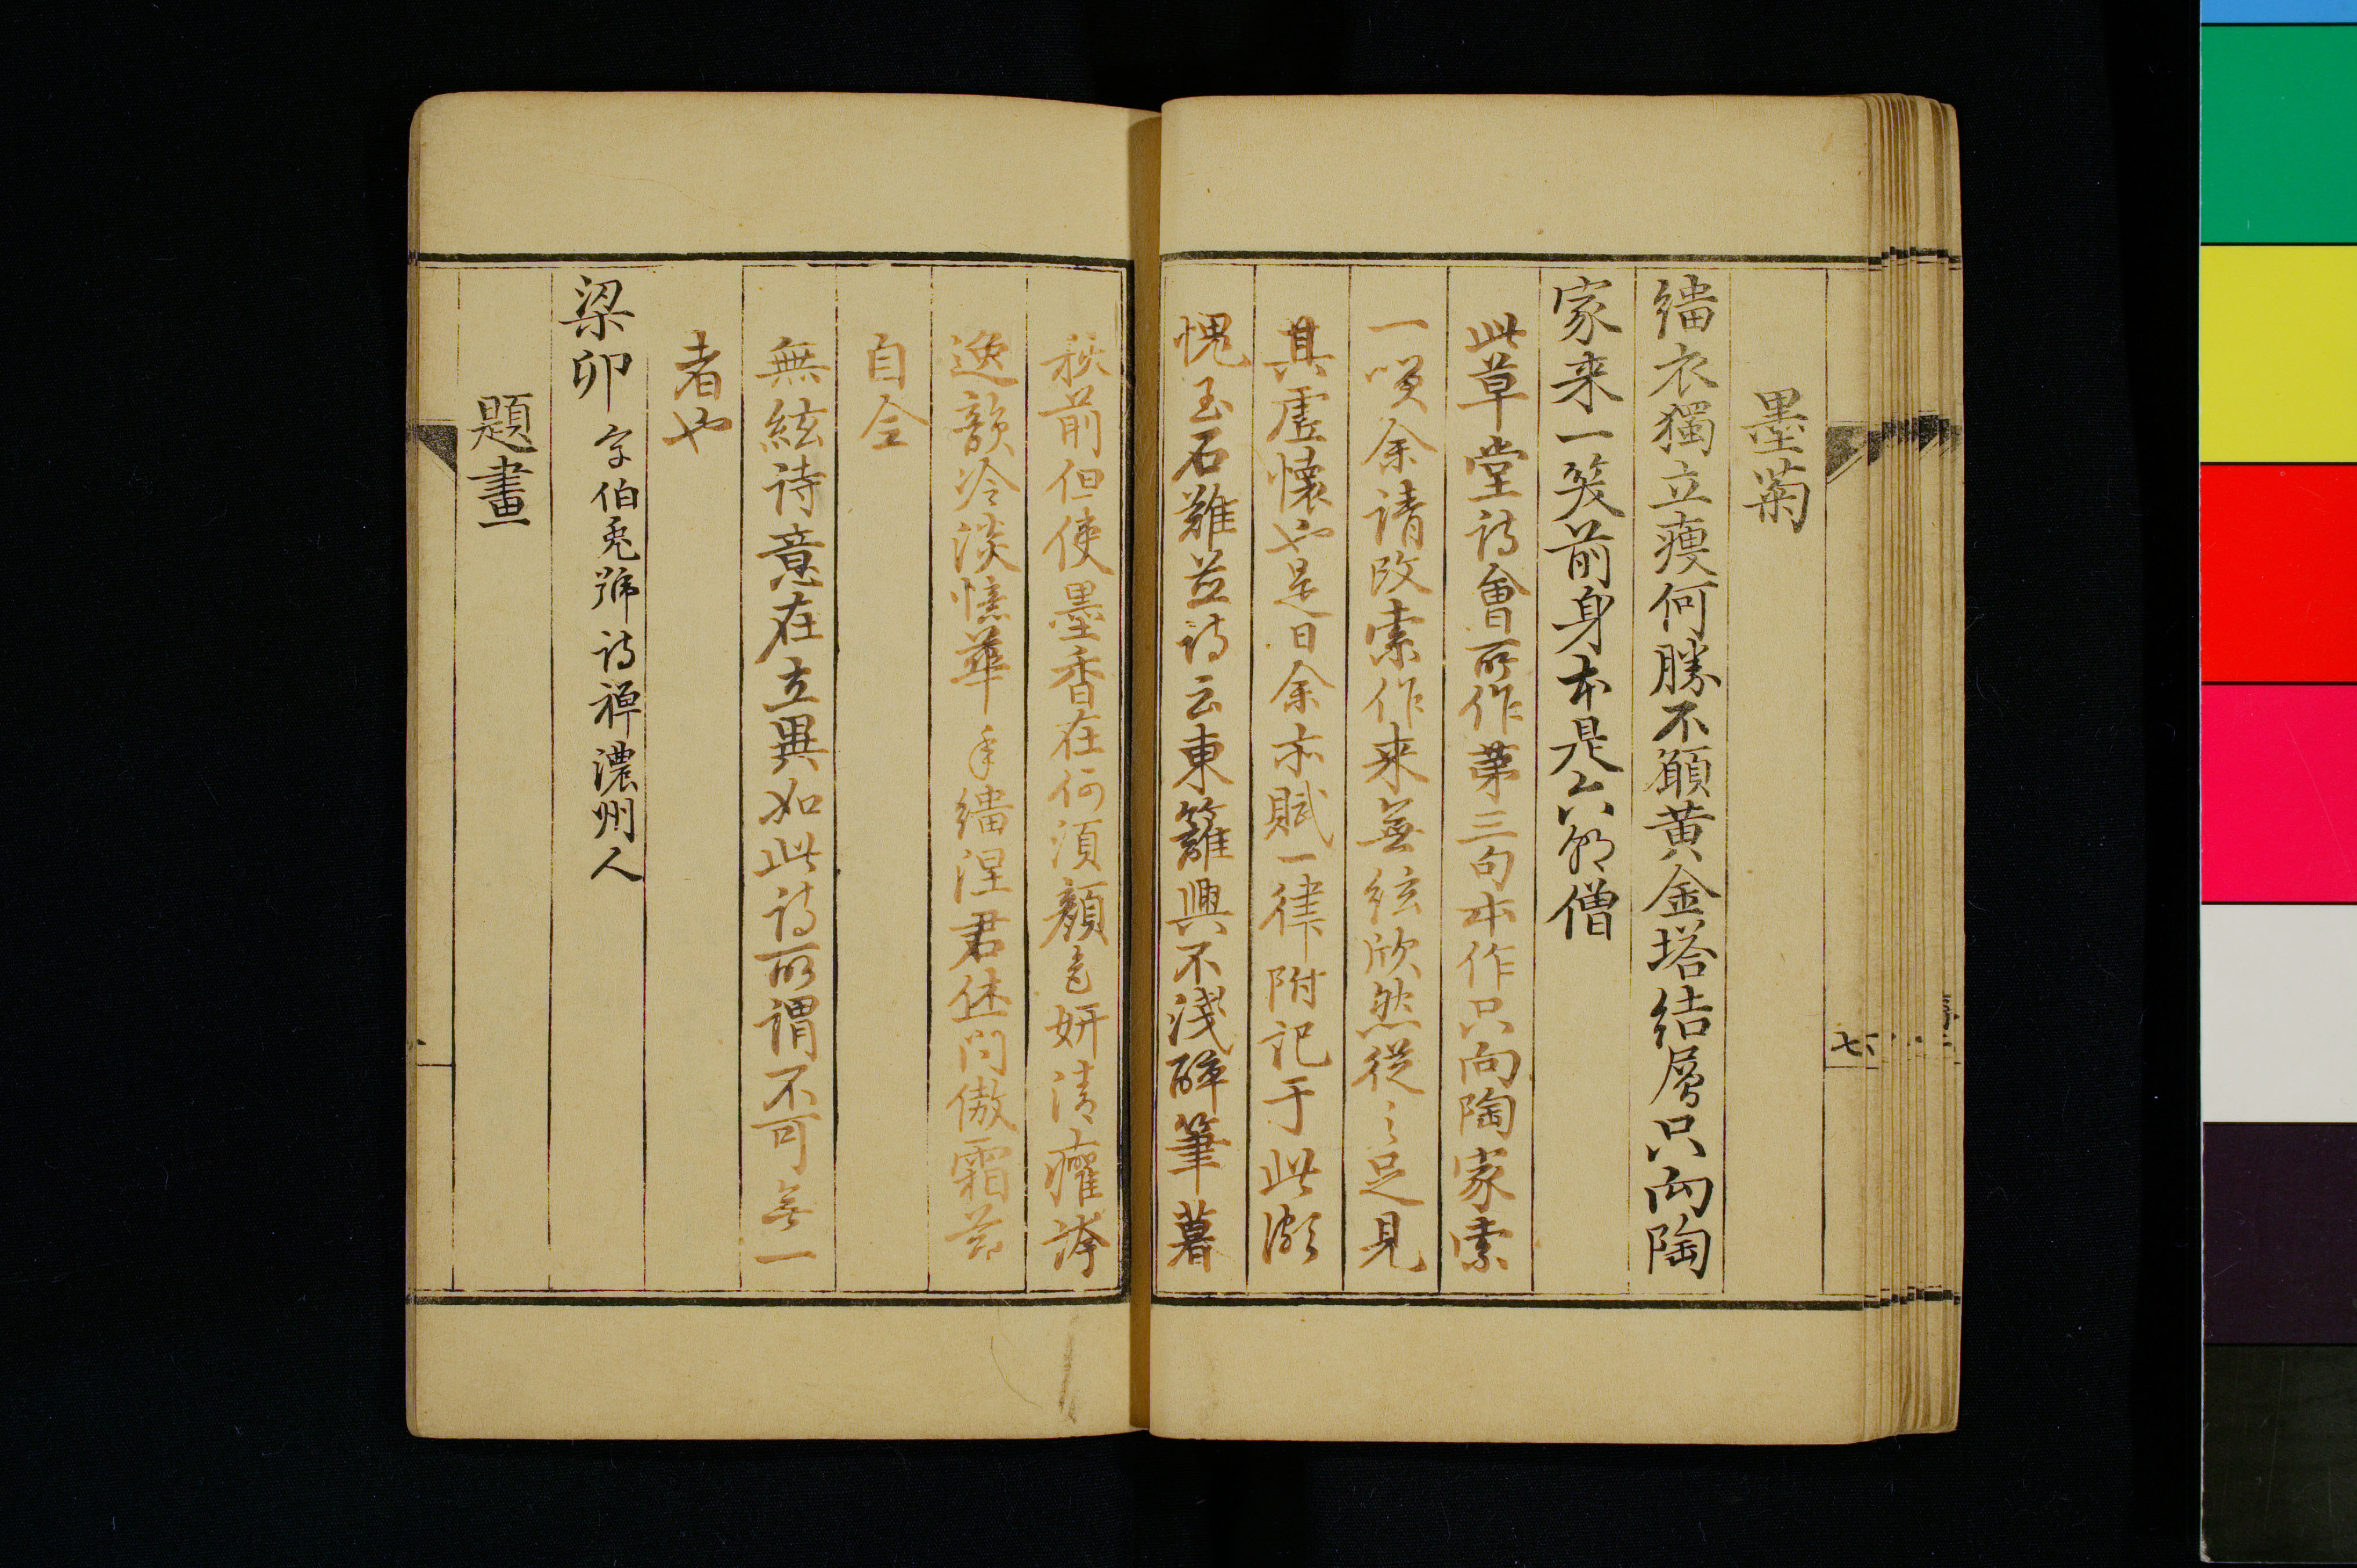 墨菊
緇衣獨立瘦何勝不願黄金塔結層只向陶
家来一笑前身本是六朝僧
此草堂詩會所作第三句本作只向陶家索
一咲余請改索作来無絃欣然從之足見
其虛懷也是日余亦賦一律附記于此漸
愧玉石難並詩云東籬興不淺醉筆暮
秋前但使墨香在何須顔色妍清癯誇
逸韻冷淡愜華年緇涅君休問傲霜節
自全
無絃詩意在立異如此詩所謂不可無一
者也
梁卯 字伯兎號詩禅濃州人
題畫
七